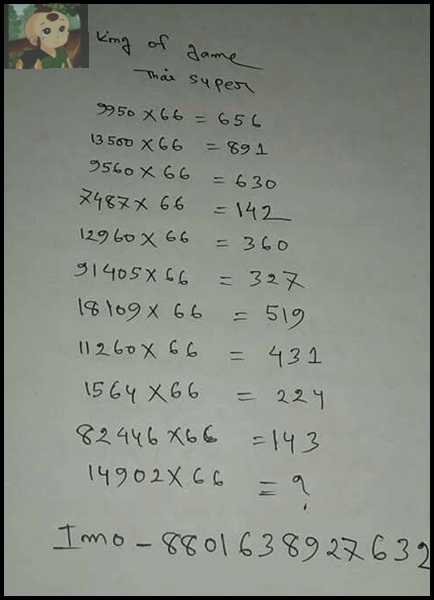 King of game
Thai super
9950 × 66 = 656
13500 × 66 = 891
9560 × 66 = 630
7487 × 66 = 142
12960 × 66 = 360
91405 × 66 = 327
18109 × 66 = 519
11260 × 66 = 431
1564 × 66 = 224
82446 × 66 = 143
14902 × 66 = ?
Imo - 8801638927632